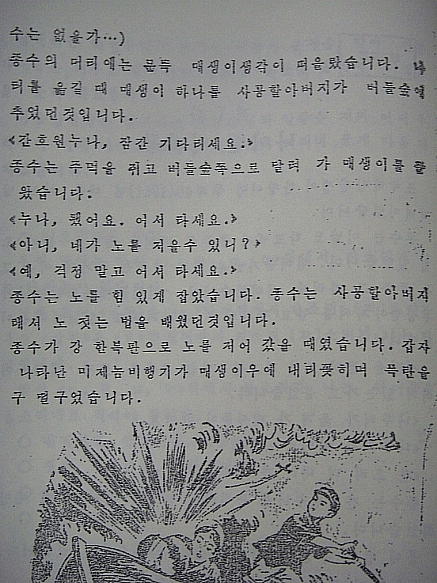 수는 없을가…)
종수의 머리에는 문득 매생이생각이 떠올랐습니다.
터를 옮길 때 매생이 하나를 사공할아버지가 버들숲에
추었던것입니다.
《간호원누나, 잠간 기다리세요.》
종수는 주먹을 쥐고 버들숲쪽으로 달려 가 매생이를 끌
왔습니다.
《누나, 됐어요. 어서 타세요.》
《아니, 네가 노를 저을수 있니?》
《예, 걱정 말고 어서 타세요.》
종수는 노를 힘 있게 잡았습니다. 종수는 사공할아버지
테서 노 젓는 법을 배웠던것입니다.
종수가 강 한복판으로 노를 저어 갔을 때였습니다. 갑자
나타난 미제놈비행기가 매생이우에 내리꽂히며 폭탄을
구 떨구었습니다.